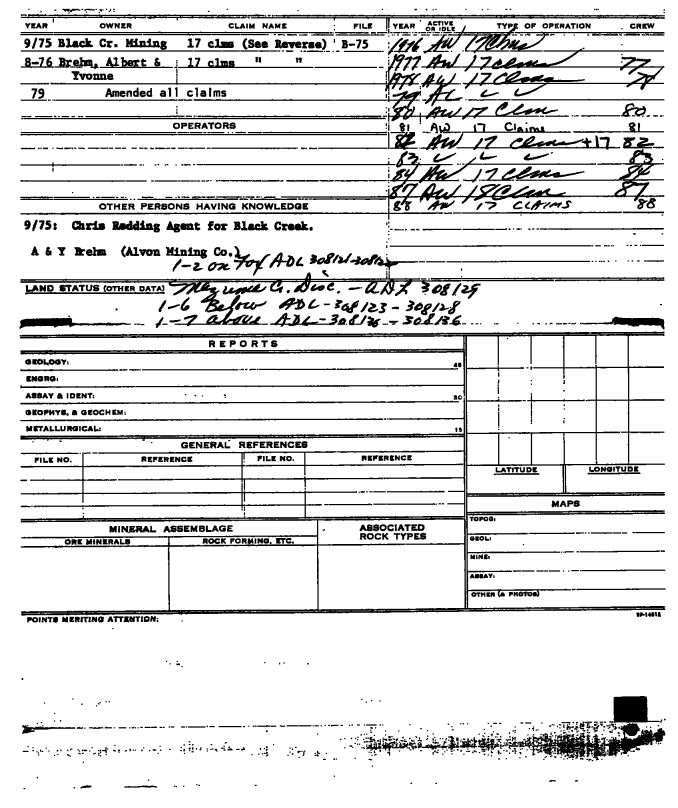 YEAR OWNER CLAIM NAME FILE
9/75 Black Cr. Mining 17 clms (See Reverse) B-75
8-76 Brehm, Albert & 17 clms " "
Yvonne
79 Amended all claims
OPERATORS
OTHER PERSONS HAVING KNOWLEDGE
9/75: Chris Redding Agent for Black Creek.
A & Y Brehm (Alvon Mining Co.)
1-2 on Top ADL 308121-308122
YEAR ACTIVE OR IDLE TYPE OF OPERATION CREW
1976 AW 17 Clms
1977 AW 17 clms 77
1978 AW 17 Clms 78
79 AL
80 AW 17 Clm 80
81 AW 17 Claims 81
82 AW 17 clms +17 82
83 83
84 AW 17 Clms 84
87 AW 18 Clm 87
88 AW 17 CLAIMS 88
LAND STATUS (OTHER DATA) Disc. - ADL 308129
1-6 Below ADL-308123-308128
1-7 above ADL-308136
REPORTS
GEOLOGY: 45
ENGRG:
ASSAY & IDENT: 30
GEOPHYS, & GEOCHEM:
METALLURGICAL: 15
GENERAL REFERENCES
FILE NO. REFERENCE FILE NO. REFERENCE
LATITUDE LONGITUDE
MAPS
TOPOG:
GEOL:
MINE:
ASSAY:
OTHER (& PHOTOS)
MINERAL ASSEMBLAGE
ORE MINERALS ROCK FORMING, ETC.
ASSOCIATED ROCK TYPES
POINTS MERITING ATTENTION: